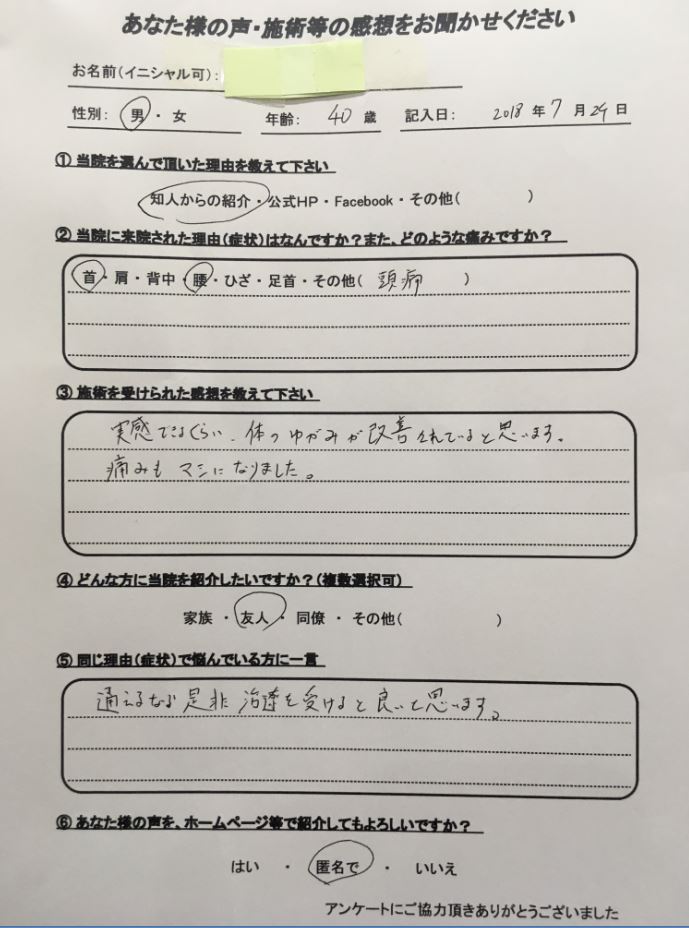 あなた様の声・施術等の感想をお聞かせください
お名前(イニシャル可):
性別: 男・女 年齢: 40 歳 記入日: 2018 年 7 月 24 日
① 当院を選んで頂いた理由を教えて下さい
知人からの紹介・公式HP・Facebook・その他( )
② 当院に来院された理由(症状)はなんですか?また、どのような痛みですか?
首・肩・背中・腰・ひざ・足首・その他( 頭痛 )
③ 施術を受けられた感想を教えて下さい
実感できるくらい、体のゆがみが改善されていると思います。
痛みもマシになりました。
④ どんな方に当院を紹介したいですか?(複数選択可)
家族・友人・同僚・その他( )
⑤ 同じ理由(症状)で悩んでいる方に一言
通えるなら是非治療を受けると良いと思います。
⑥ あなた様の声を、ホームページ等で紹介してもよろしいですか?
はい・匿名で・いいえ
アンケートにご協力頂きありがとうございました